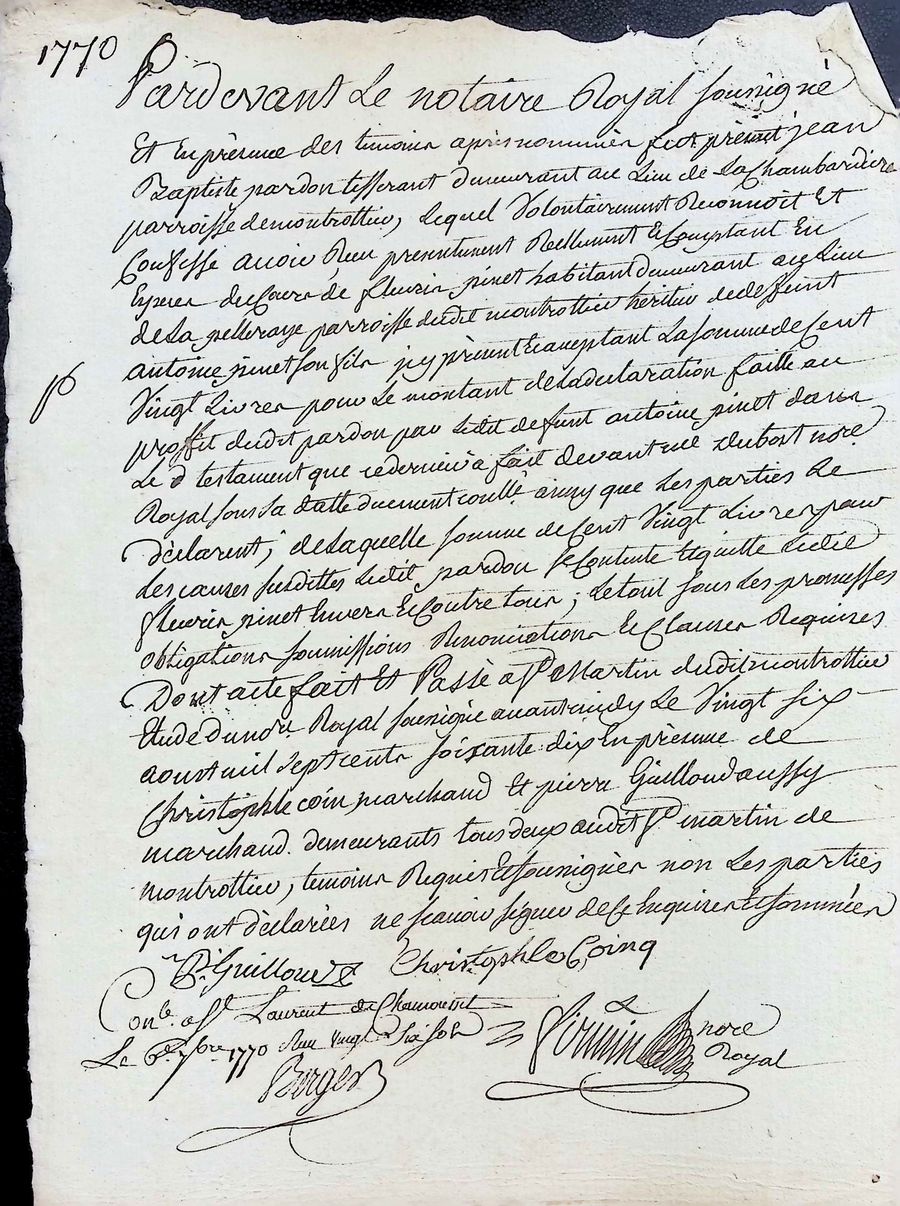 1770
Pardevant Le notaire Royal sousigné
Et En présence des temoins après nommés fut présent jean
Baptiste pardon tisserant demeurant au Lieu de La Chambardiere
parroisse de montrottier, Lequel Volontairement Reconnoit Et
Confesse avoir Reçu présentement Réellement & Comptant En
Especes de Cours de fleurie pinet habitant demeurant au Lieu
de La pelleraye parroisse dudit montrottier héritier de deffunt
antoine pinet son fils jcy présent & acceptant La somme de Cent
Vingt Livres pour Le montant de La declaration faitte au
proffit dudit pardon par Ledit defunt antoine pinet dans
Le d testament que ce dernier a fait devant me Dubost nore
Royal sous sa datte duement conllé ainsy que Les parties Le
déclarent; de Laquelle somme de Cent Vingt Livres pour
Les causes susdittes Ledit pardon se Contente & quitte Ledit
fleurie pinet Envers & Contre tous; Le tout sous Les promesses
obligations soumissions Renonciations & Clauses Requises
Dont acte fait Et Passé a St Martin dudit montrottier
Etude du nore Royal sousigné avant midy Le Vingt six
aoust mil sept cents soixante dix En présence de
Christophle coin marchand Et pierre Guilloud aussy
marchand demeurants tous deux audit St martin de
montrottier, temoins Requis & sousignés non Les parties
qui ont déclarées ne scavoir signer de ce Enquises & sommées
Guilloud Christophle Coing
Conle. a St Laurent de Chamousset
Le 6e 7bre 1770 Reçu Vingt Six sols
nore
Royal
Berger